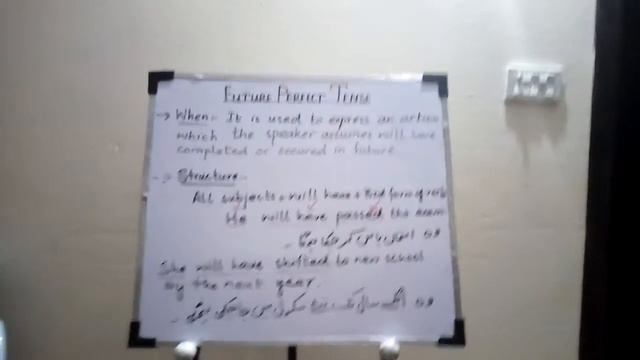 FUTURE PERFECT TENSE
→ When:- It is used to express an action
which the speaker assumes will have
completed or occured in future.
→ Structure:-
All subjects + will have + 3rd form of verb
He will have passed the exam
وہ امتحان پاس کر چکا ہوگا۔
She will have shifted to new school
by the next year.
وہ اگلے سال تک نئے سکول میں جا چکی ہوگی۔